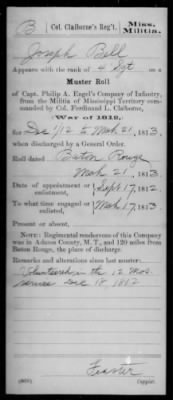 B | Col. Claiborne's Reg't. | Miss. Militia.
Joseph Bell
Appears with the rank of 4 Sgt on a
Muster Roll
of Capt. Philip A. Engel's Company of Infantry,
from the Militia of Mississippi Territory commanded by Col. Ferdinand L. Claiborne,
War of 1812,
for Dec 1/12 to Mch 21, 1813,
when discharged by a General Order.
Roll dated Baton Rouge
Mch 21, 1813.
Date of appointment or enlistment, Sept 17, 1812.
To what time engaged or enlisted, Mch 17, 1813.
Present or absent,
NOTE: Regimental rendezvous of this Company
was in Adams County, M. T., and 120 miles from
Baton Rouge, the place of discharge.
Remarks and alterations since last muster:
Volunteered in the 12 Mos
service Dec 18, 1812
Copyist.